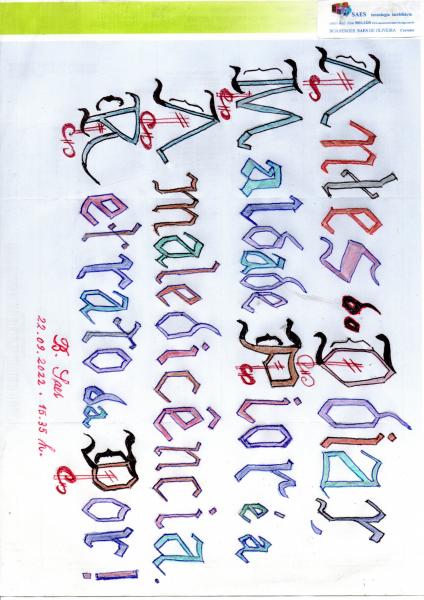 SAES tecnologia imobiliária
BOANERGES SAES DE OLIVEIRA Corretor
Antes do Odiar,
Maldade Pior é a
A maledicência.
Retrato da Dor!
B. Saes
22.09.2022. 15.35 h.